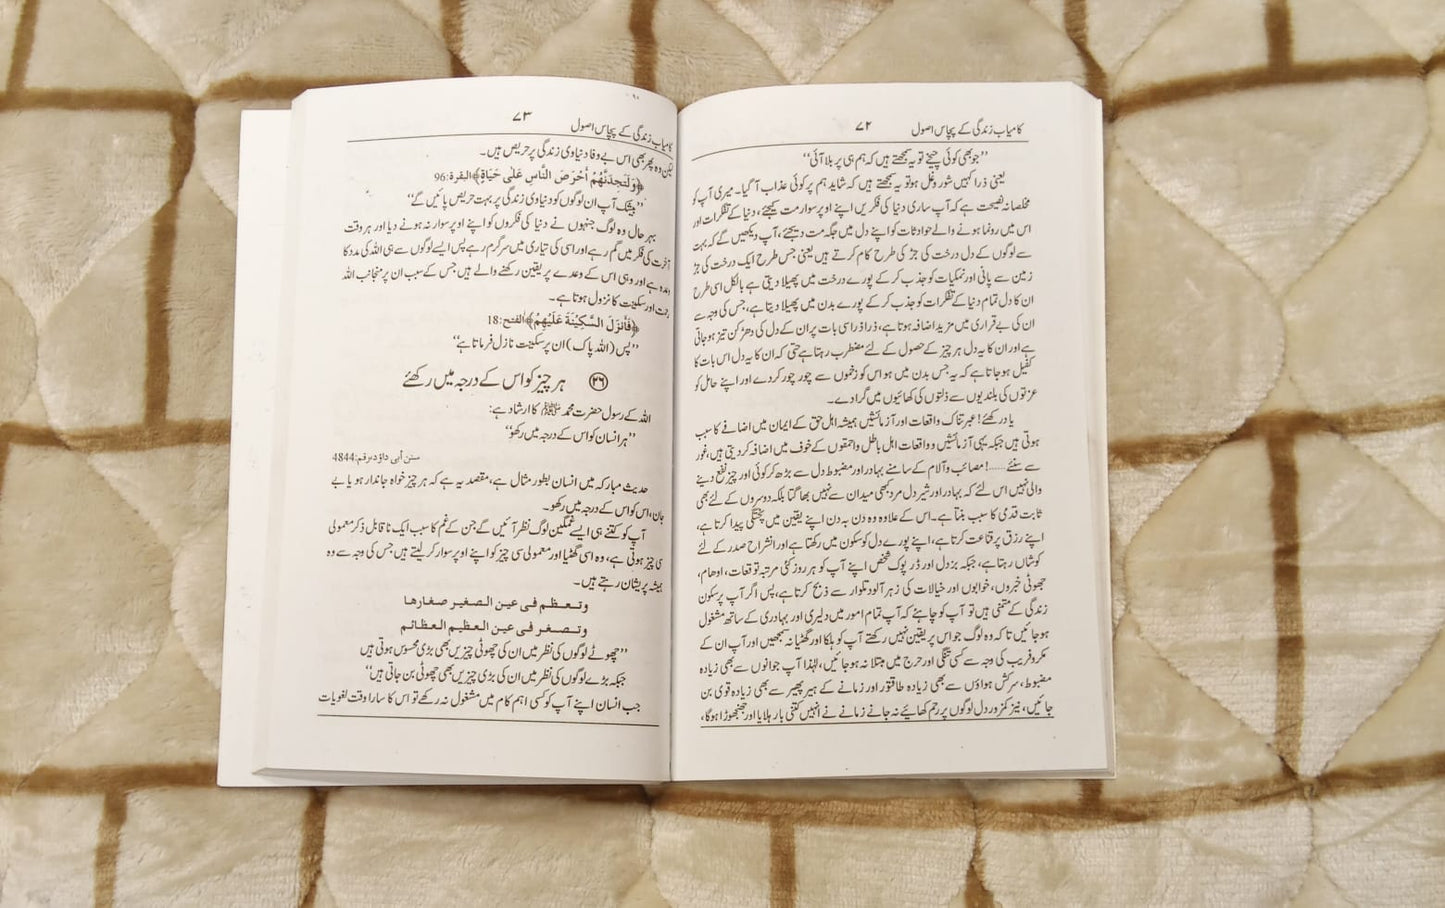 کامیاب زندگی کے پچاس اصول ۷۲
’’جو بھی کوئی چیخے تو یہ سمجھتے ہیں کہ ہم ہی پر بلا آئی‘‘
یعنی ذرا کہیں شور و غل ہو تو یہ سمجھتے ہیں کہ شاید ہم پر کوئی عذاب آ گیا۔ میری آپ کو
مخلصانہ نصیحت ہے کہ آپ ساری دنیا کی فکریں اپنے اوپر سوار مت کیجئے، دنیا کے تفکرات اور
اس میں رونما ہونے والے حوادثات کو اپنے دل میں جگہ مت دیجئے، آپ دیکھیں گے کہ بہت
سے لوگوں کے دل درخت کی جڑ کی طرح کام کرتے ہیں یعنی جس طرح ایک درخت کی جڑ
زمین سے پانی اور نمکیات کو جذب کر کے پورے درخت میں پھیلا دیتی ہے بالکل اسی طرح
ان کا دل تمام دنیا کے تفکرات کو جذب کر کے پورے بدن میں پھیلا دیتا ہے، جس کی وجہ سے
ان کی بے قراری میں مزید اضافہ ہوتا ہے، ذرا ذرا سی بات پر ان کے دل کی دھڑکن تیز ہو جاتی
ہے اور ان کا یہ دل ہر چیز کے حصول کے لئے مضطرب رہتا ہے حتی کہ ان کا یہ دل اس بات کا
کفیل ہو جاتا ہے کہ یہ جس بدن میں ہو اس کو زخموں سے چور چور کر دے اور اپنے حامل کو
عزتوں کی بلندیوں سے ذلتوں کی کھائیوں میں گرا دے۔
یاد رکھئے! عبرتناک واقعات اور آزمائشیں ہمیشہ اہل حق کے ایمان میں اضافے کا سبب
ہوتی ہیں جبکہ یہی آزمائشیں و واقعات اہل باطل و احمقوں کے خوف میں اضافہ کر دیتی ہیں، غور
سے سنئے......! مصائب و آلام کے سامنے بہادر اور مضبوط دل سے بڑھ کر کوئی اور چیز نفع دینے
والی نہیں اس لئے کہ بہادر اور شیر دل مرد کبھی میدان سے نہیں بھاگتا بلکہ دوسروں کے لئے بھی
ثابت قدمی کا سبب بنتا ہے۔ اس کے علاوہ وہ دن بہ دن اپنے یقین میں پختگی پیدا کرتا ہے،
اپنے رزق پر قناعت کرتا ہے، اپنے پورے دل کو سکون میں رکھتا ہے اور انشراح صدر کے لئے
کوشاں رہتا ہے، جبکہ بزدل اور ڈرپوک شخص اپنے آپ کو ہر روز کئی مرتبہ توقعات، اوہام،
جھوٹی خبروں، خوابوں اور خیالات کی زہر آلود تلوار سے ذبح کرتا ہے، پس اگر آپ پرسکون
زندگی کے متمنی ہیں تو آپ کو چاہئے کہ آپ تمام امور میں دلیری اور بہادری کے ساتھ مشغول
ہو جائیں تاکہ وہ لوگ جو اس پر یقین نہیں رکھتے آپ کو ہلکا اور گھٹیا نہ سمجھیں اور آپ ان کے
مکر و فریب کی وجہ سے کسی تنگی اور حرج میں مبتلا نہ ہو جائیں، لہٰذا آپ جوانوں سے بھی زیادہ
مضبوط، سرکش ہواؤں سے بھی زیادہ طاقتور اور زمانے کے ہیر پھیر سے بھی زیادہ قوی بن
جائیں، نیز کمزور دل لوگوں پر رحم کھائیے نہ جانے زمانے نے انہیں کتنی بار ہلایا اور جھنجھوڑا ہوگا،
کامیاب زندگی کے پچاس اصول ۷۳
لیکن وہ پھر بھی اس بے وفا دنیاوی زندگی پر حریص ہیں۔
﴿وَلَتَجِدَنَّهُمْ أَحْرَصَ النَّاسِ عَلٰى حَيَاةٍ﴾ البقرة:96
’’بیشک آپ ان لوگوں کو دنیاوی زندگی پر بہت حریص پائیں گے‘‘
بہر حال وہ لوگ جنہوں نے دنیا کی فکروں کو اپنے اوپر سوار نہ ہونے دیا اور ہر وقت
آخرت کی فکر میں گم رہے اور اسی کی تیاری میں سرگرم رہے پس ایسے لوگوں سے ہی اللہ کی مدد کا
وعدہ ہے اور وہی اس کے وعدے پر یقین رکھنے والے ہیں جس کے سبب ان پر منجانب اللہ
رحمت اور سکینت کا نزول ہوتا ہے۔
﴿فَأَنْزَلَ السَّكِينَةَ عَلَيْهِمْ﴾ الفتح:18
’’پس (اللہ پاک) ان پر سکینت نازل فرماتا ہے‘‘
۲۶ ہر چیز کو اس کے درجہ میں رکھئے
اللہ کے رسول حضرت محمد ﷺ کا ارشاد ہے:
’’ہر انسان کو اس کے درجہ میں رکھو‘‘
سنن أبی داؤد،رقم:4844
حدیث مبارکہ میں انسان بطور مثال ہے، مقصد یہ ہے کہ ہر چیز خواہ جاندار ہو یا بے
جان، اس کو اس کے درجہ میں رکھو۔
آپ کو کتنے ہی ایسے غمگین لوگ نظر آئیں گے جن کے غم کا سبب ایک ناقابل ذکر معمولی
سی چیز ہوتی ہے، وہ اسی گھٹیا اور معمولی سی چیز کو اپنے اوپر سوار کر لیتے ہیں جس کی وجہ سے وہ
ہمیشہ پریشان رہتے ہیں۔
وتعظم فی عین الصغیر صغارها
وتصغر فی عین العظیم العظائم
’’چھوٹے لوگوں کی نظر میں ان کی چھوٹی چیزیں بھی بڑی محسوس ہوتی ہیں
جبکہ بڑے لوگوں کی نظر میں ان کی بڑی چیزیں بھی چھوٹی بن جاتی ہیں‘‘
جب انسان اپنے آپ کو کسی اہم کام میں مشغول نہ رکھے تو اس کا سارا وقت لغویات